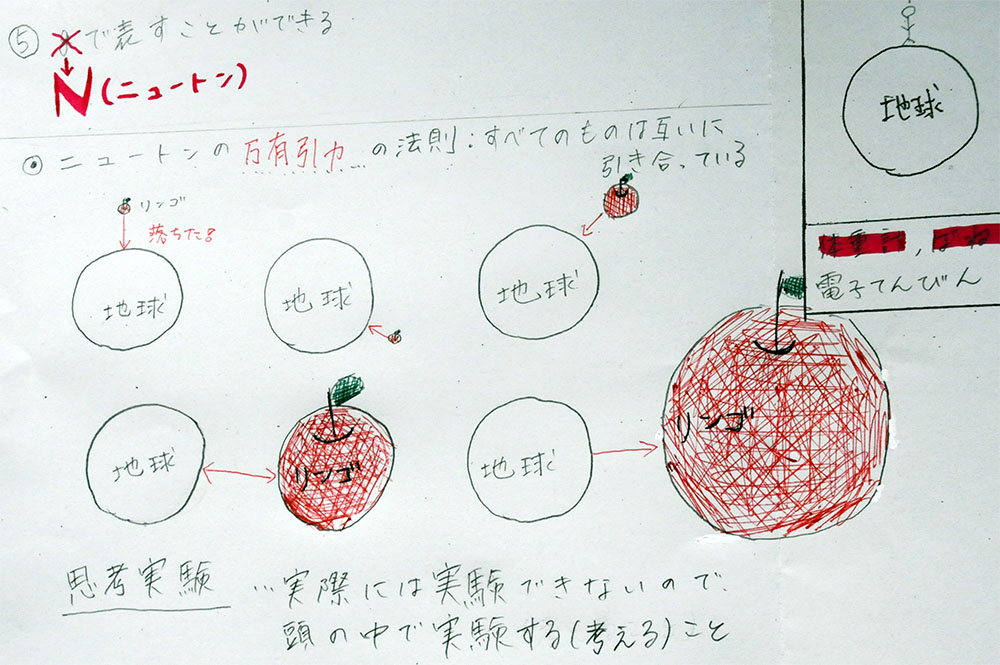 ⑤ で表すことができる
N(ニュートン)
⊙ニュートンの万有引力の法則:すべてのものは互いに
引き合っている
リンゴ
落ちた!
地球
地球
地球
地球
リンゴ
地球
リンゴ
思考実験 …実際には実験できないので、
頭の中で実験する(考える)こと
地球
体重計,ばね
電子てんびん